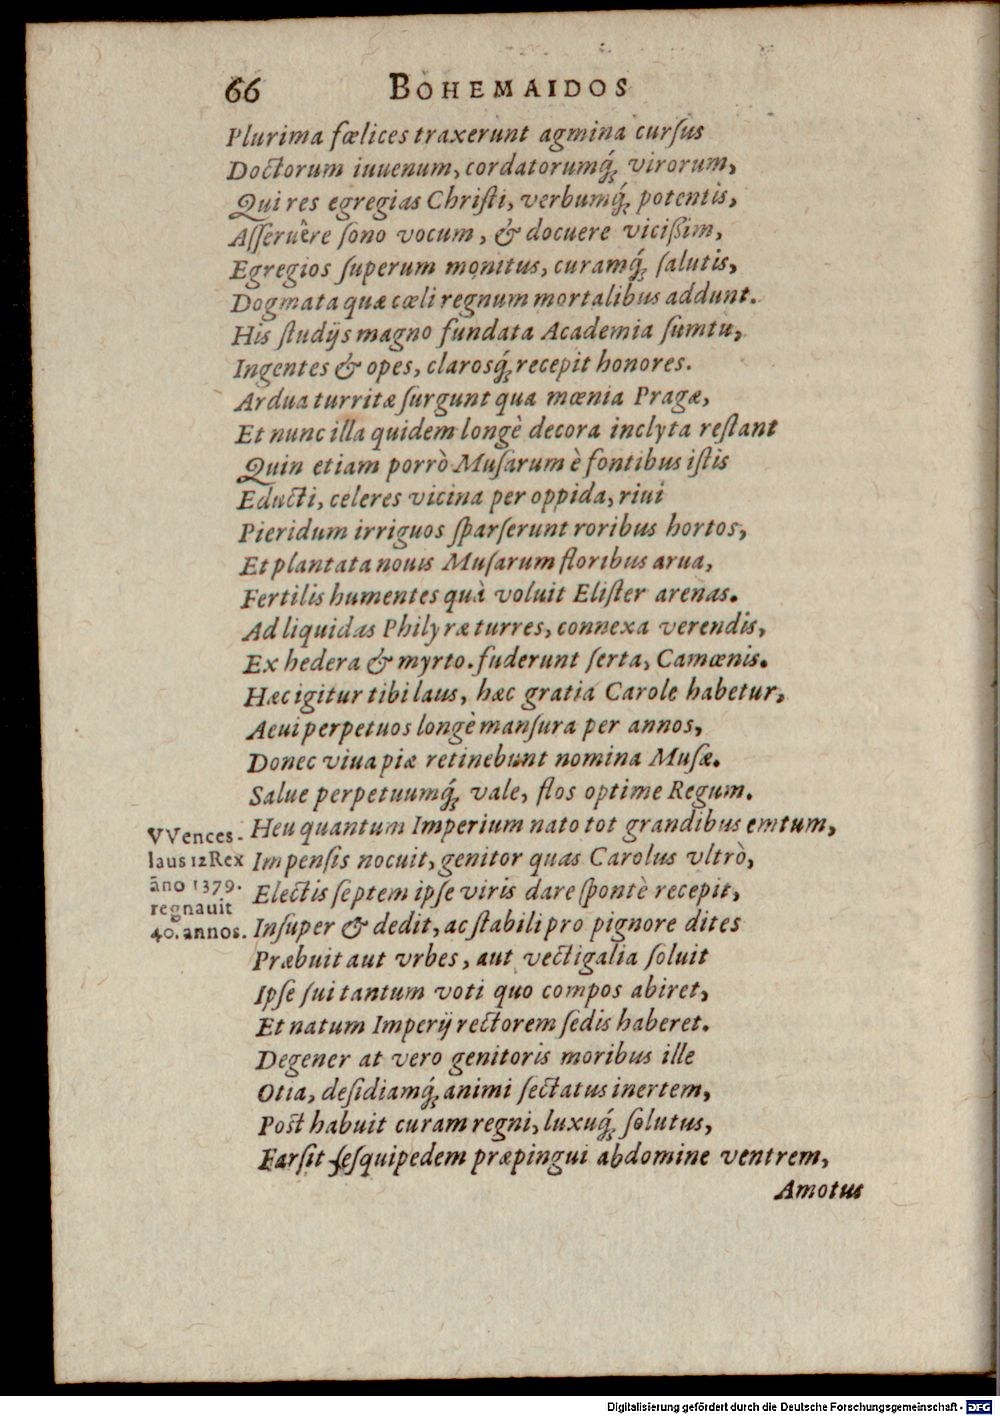 66 BOHEMAIDOS
Plurima fœlices traxerunt agmina curſus
Doctorum iuuenum, cordatorumq́ꝫ virorum,
Qui res egregias Chriſti, verbumq́ꝫ potentis,
Aſſeruêre ſono vocum, & docuere vicißim,
Egregios ſuperum monitus, curamq́ꝫ ſalutis,
Dogmata quæ cœli regnum mortalibus addunt.
His ſtudijs magno fundata Academia ſumtu,
Ingentes & opes, clarosq́ꝫ recepit honores.
Ardua turritæ ſurgunt qua mœnia Pragæ,
Et nunc illa quidem longè decora inclyta reſtant
Quin etiam porrò Muſarum è fontibus iſtis
Educti, celeres vicina per oppida, riui
Pieridum irriguos ſparſerunt roribus hortos,
Et plantata nouis Muſarum floribus arua,
Fertilis humentes quà voluit Eliſter arenas.
Ad liquidas Philyræ turres, connexa verendis,
Ex hedera & myrto. fuderunt ſerta, Camœnis.
Hæc igitur tibi laus, hæc gratia Carole habetur,
Aeui perpetuos longè manſura per annos,
Donec viua piæ retinebunt nomina Muſæ.
Salue perpetuumq́ꝫ vale, flos optime Regum.
Heu quantum Imperium nato tot grandibus emtum,
Impenſis nocuit, genitor quas Carolus vltrò,
Electis ſeptem ipſe viris dare ſpontè recepit,
Inſuper & dedit, ac ſtabili pro pignore dites
Præbuit aut vrbes, aut vectigalia ſoluit
Ipſe ſui tantum voti quo compos abiret,
Et natum Imperij rectorem ſedis haberet.
Degener at vero genitoris moribus ille
Otia, deſidiamq́ꝫ animi ſectatus inertem,
Poſt habuit curam regni, luxuq́ꝫ ſolutus,
Farſit ſeſquipedem præpingui abdomine ventrem,
Amotus
VVences-
laus 12 Rex
āno 1379.
regnauit
40. annos.
Digitalisierung gefördert durch die Deutsche Forschungsgemeinschaft - DFG